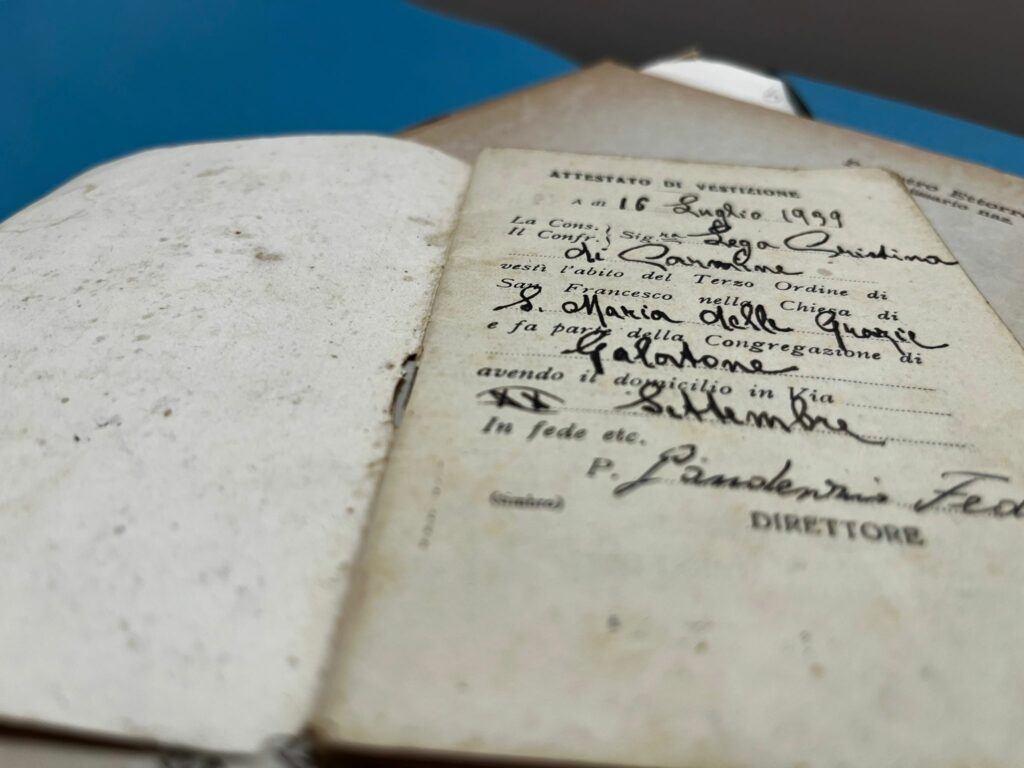 ATTESTATO DI VESTIZIONE
A dì 16 Luglio 1999
La Cons. }
Il Confr. } Sig.ra Lega Cristina
di Carmine
vestì l'abito del Terzo Ordine di
San Francesco nella Chiesa di
S. Maria delle Grazie
e fa parte della Congregazione di
Galatone
avendo il domicilio in Via
XX Settembre
In fede etc.
P. Gaudenzio Fed
(timbro)
DIRETTORE
Ettorr